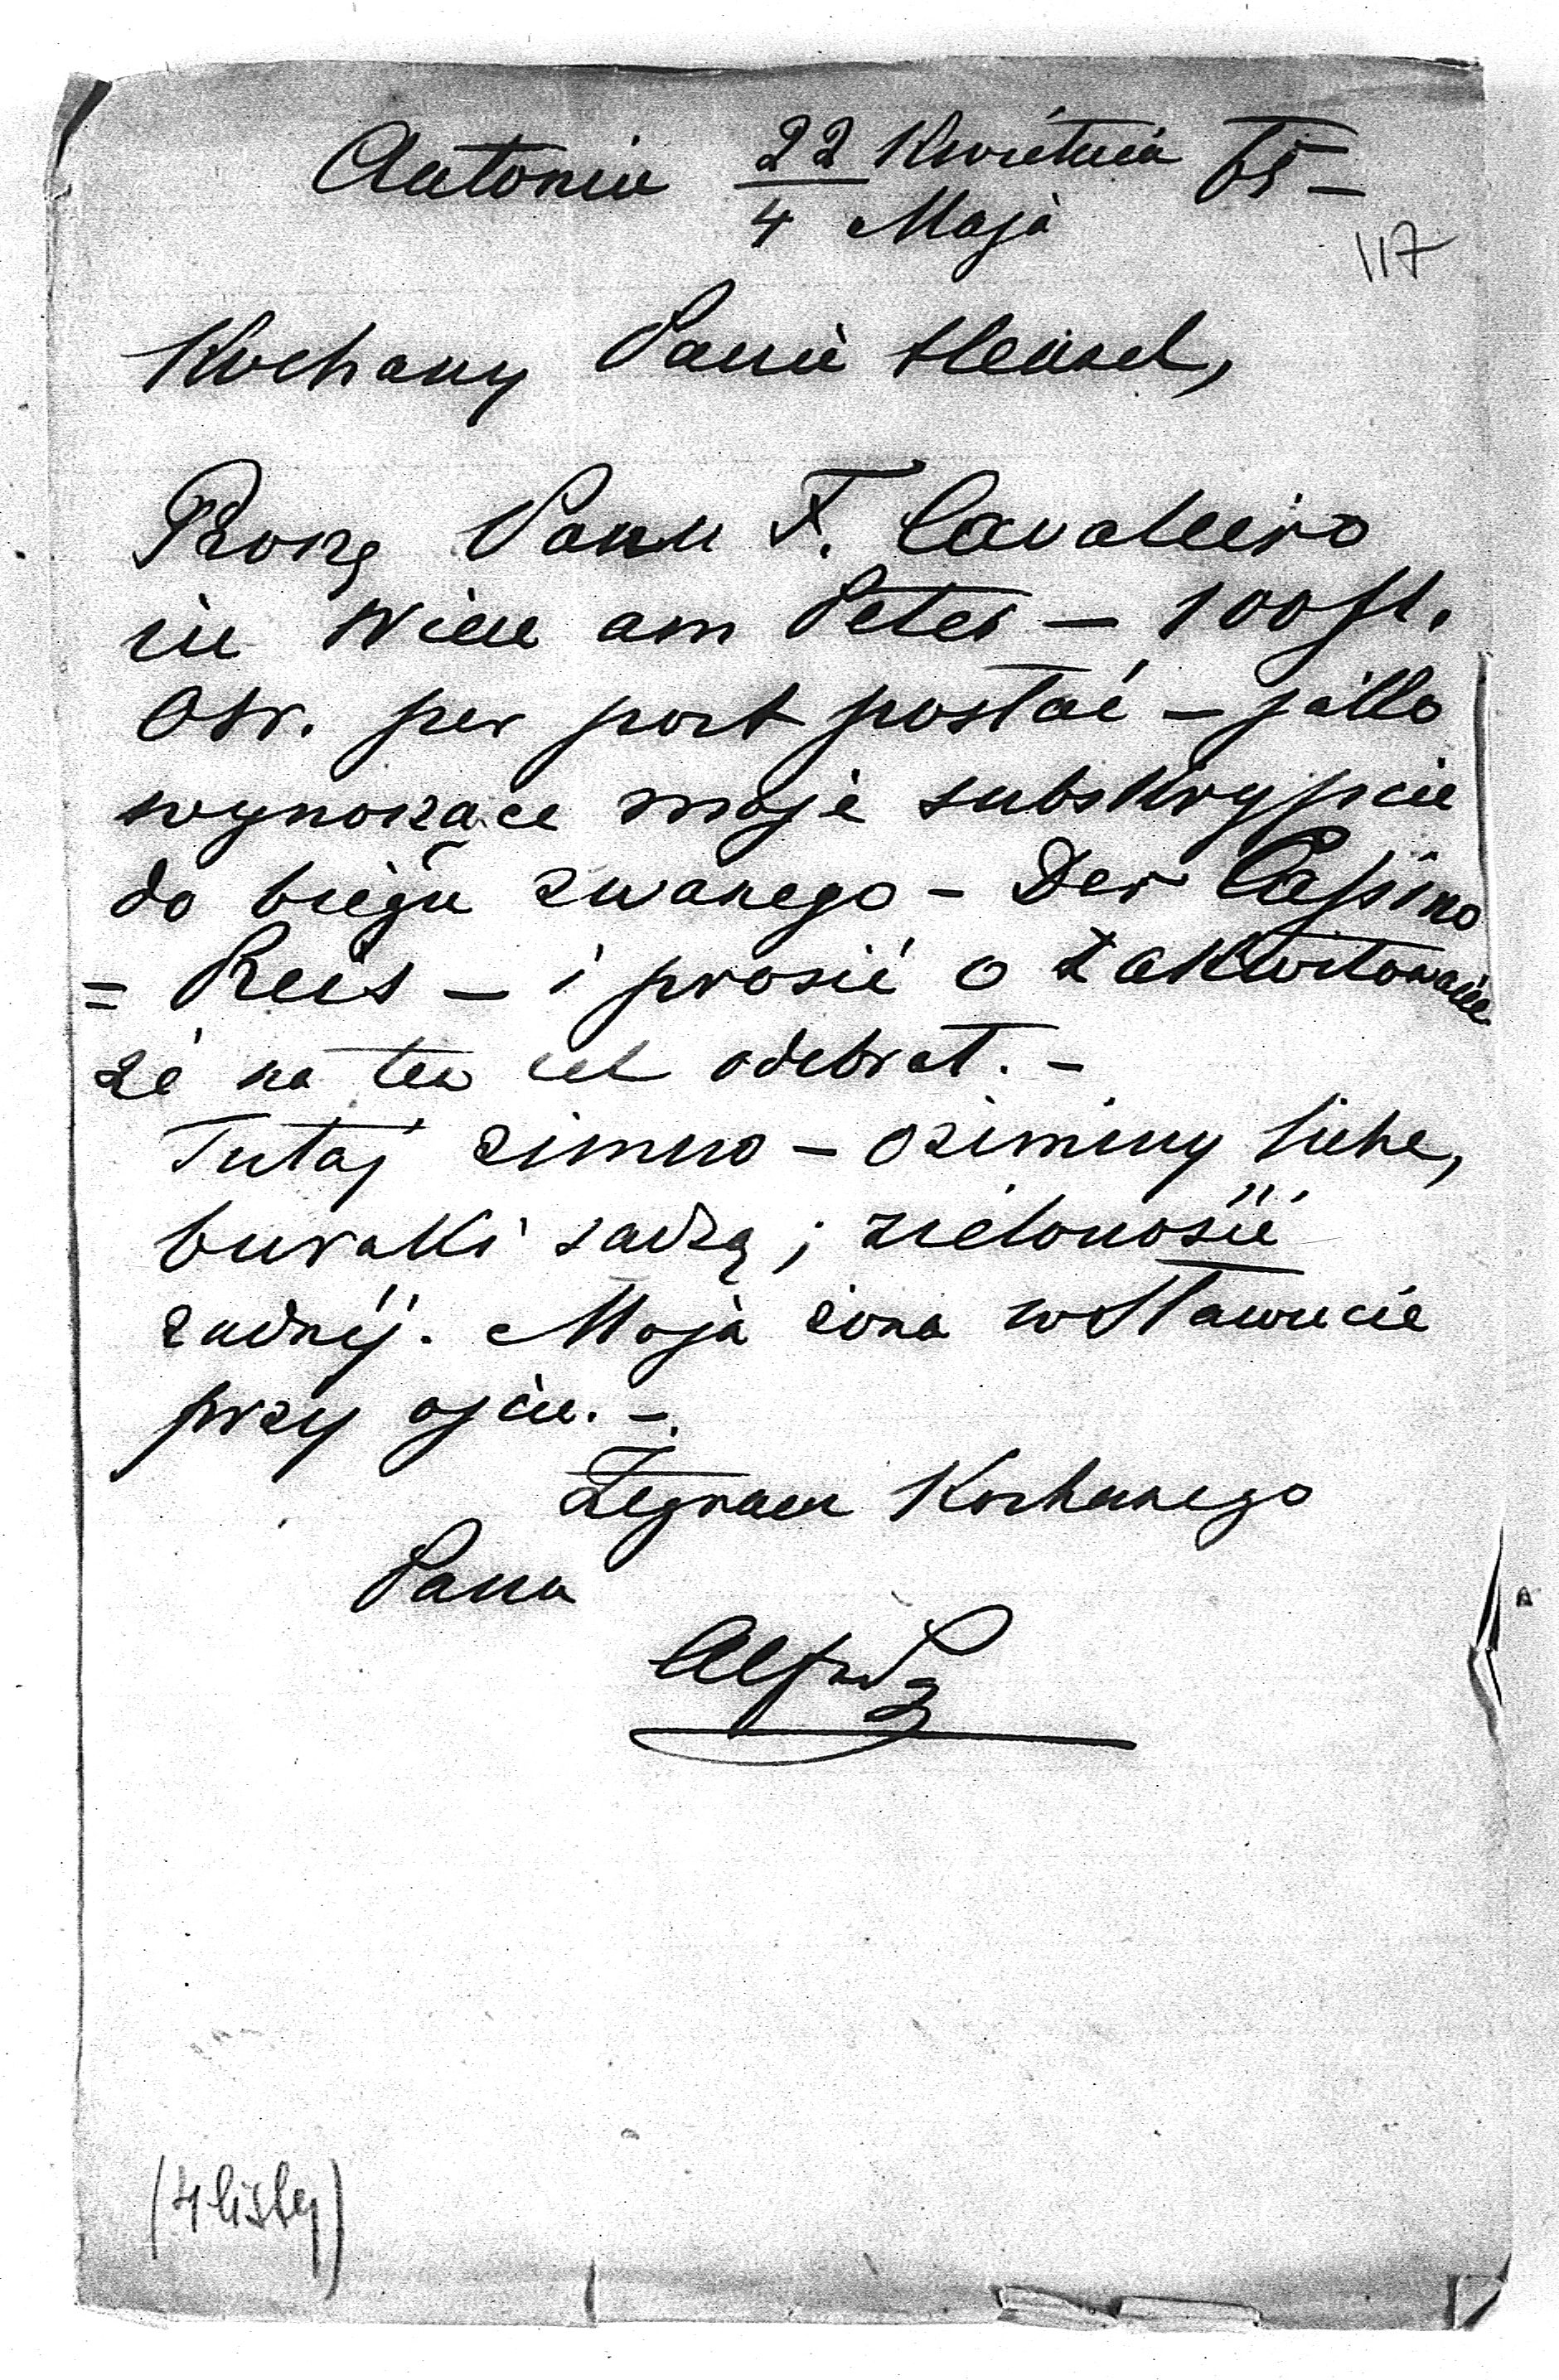 Antonin 22 Kwietnia 75 –
4 Maja
117
Kochany Panie Hensel,
Proszę Panu F. Cavaliero
in Wien am Peter – 100 fl.
Östr. per post posłać – jako
wynoszące moje subskrypcie
do biegu zwanego – Der Cassino
= Preis – i prosić o zakwitowanie
że na ten cel odebrał. –
Tutaj zimno – oziminy liche,
buraki sadzą; zieloności
żadnéj. Moja żona w Sławucie
przy ojcu. –
Żegnam Kochanego
Pana
Alfred
(4 listy)